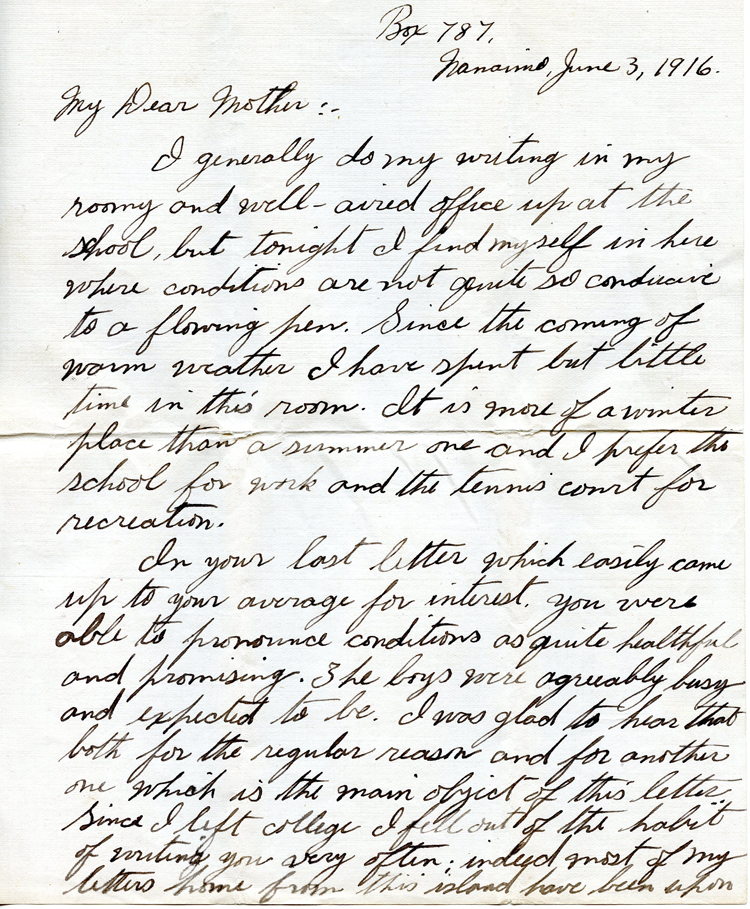 Box 787,
Nanaimo, June 3, 1916.
My Dear Mother:-
I generally do my writing in my
roomy and well-aired office up at the
school, but tonight I find myself in here
where conditions are not quite so conducive
to a flowing pen. Since the coming of
warm weather I have spent but little
time in this room. It is more of a winter
place than a summer one and I prefer the
school for work and the tennis court for
recreation.
In your last letter which easily came
up to your average for interest, you were
able to pronounce conditions as quite healthful
and promising. The boys were agreeably busy
and expected to be. I was glad to hear that
both for the regular reason and for another
one which is the main object of this letter.
Since I left college I fell out of the habit
of writing you very often; indeed most of my
letters home from this island have been upon